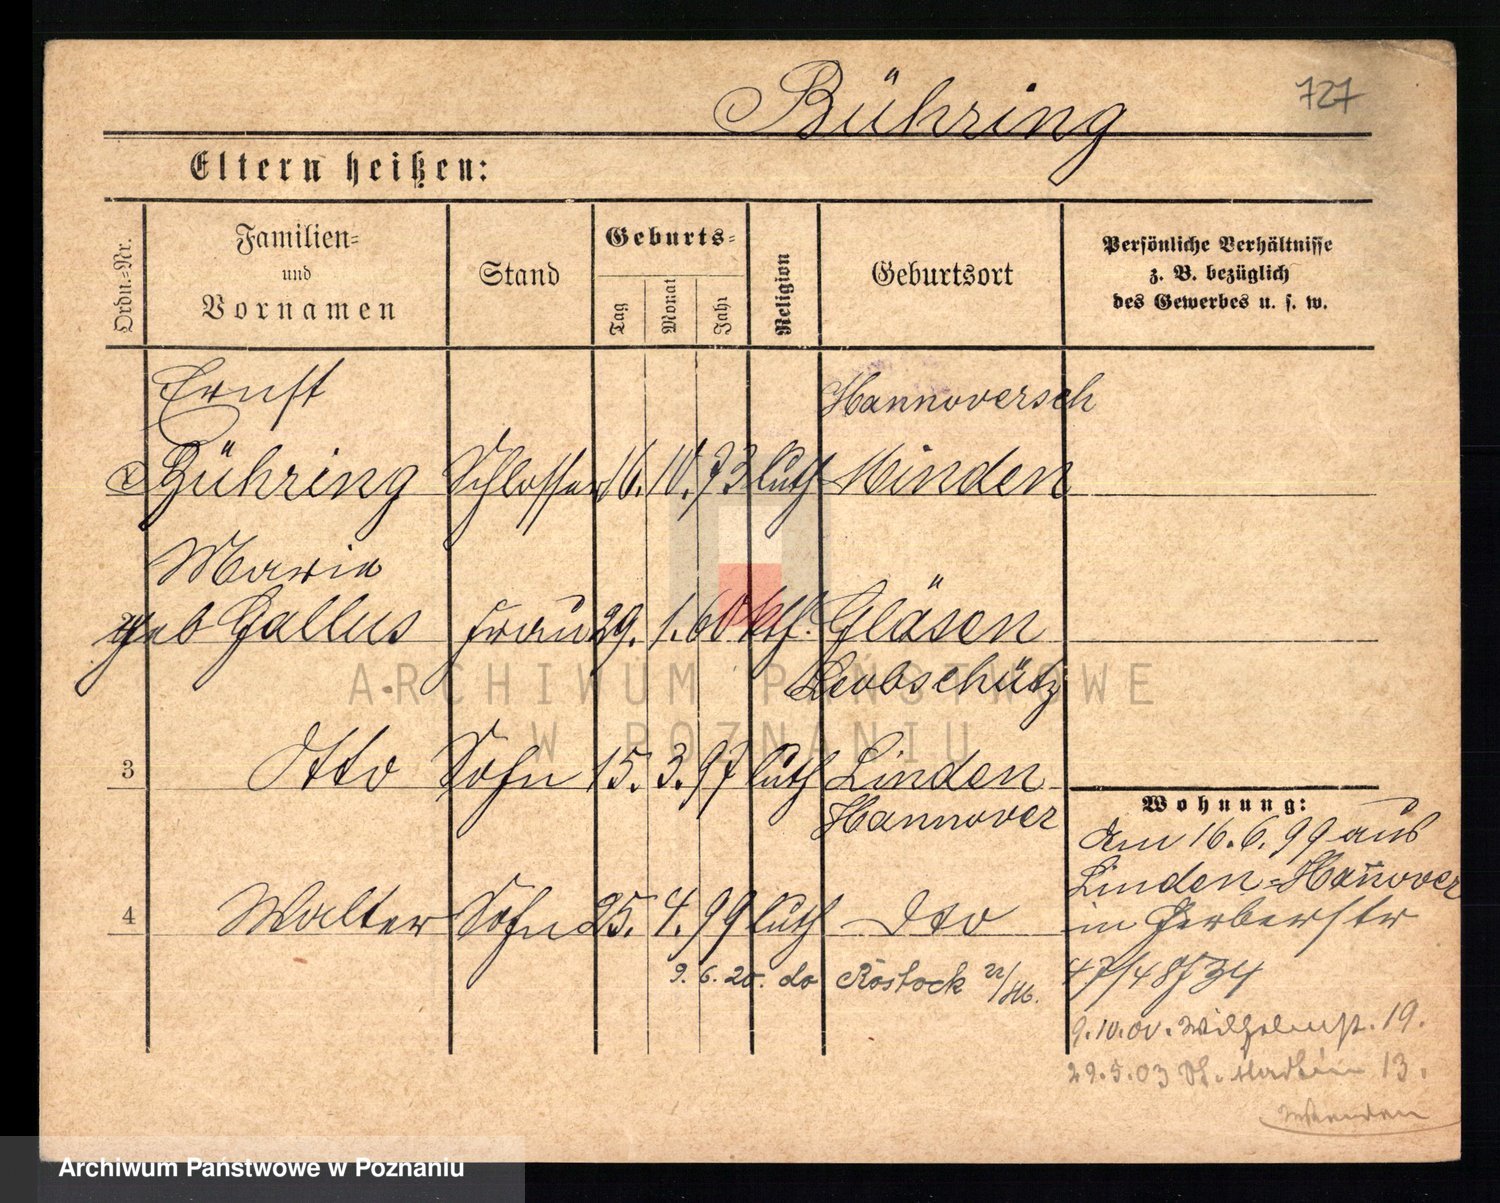 Bühring
727
Eltern heißen:
Ordn.=Nr.
Familien=
und
Vornamen
Stand
Geburts=
Tag
Monat
Jahr
Religion
Geburtsort
Persönliche Verhältnisse
z. B. bezüglich
des Gewerbes u. s. w.
Ernst
Hannoversch
Bühring Schlosser 16. 10. 73 luth Minden
Marie
geb Gallus Frau 29. 1. 60 kth. Gläsen
Leobschütz
3 Otto Sohn 15. 3. 97 luth Linden
Hannover
4 Walter Sohn 25. 4. 99 luth dto
9. 6. 20. do Rostock
Wohnung:
Am 16. 6. 99 aus
Linden=Hannover
in Gerberstr
47/48
9. 10. 00. Wilhelmst. 19.
29. 5. 03 13.
ARCHIWUM PAŃSTWOWE
W POZNANIU
Archiwum Państwowe w Poznaniu